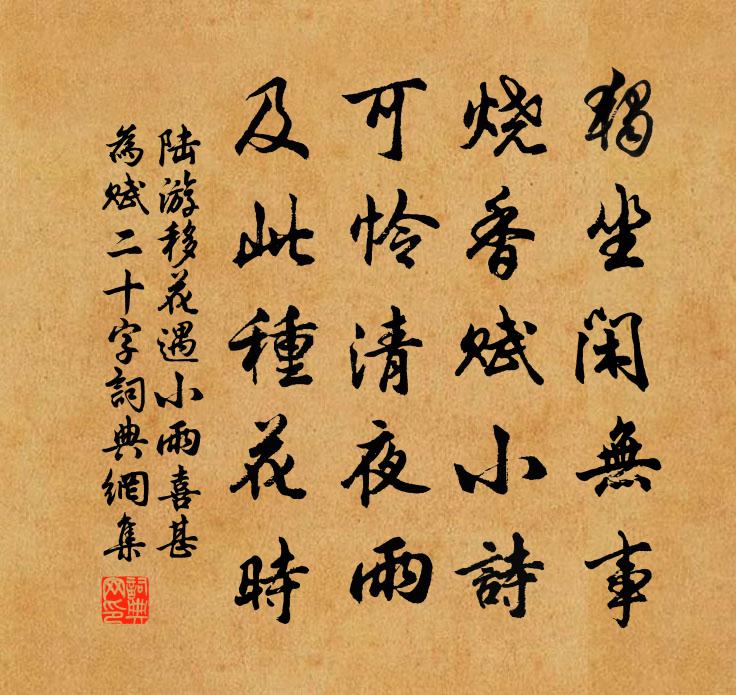 獨坐閑無事
燒香賦小詩
可怜清夜雨
及此種花時
陆游移花遇小雨喜甚
為赋二十字詞典網集
詞典網印